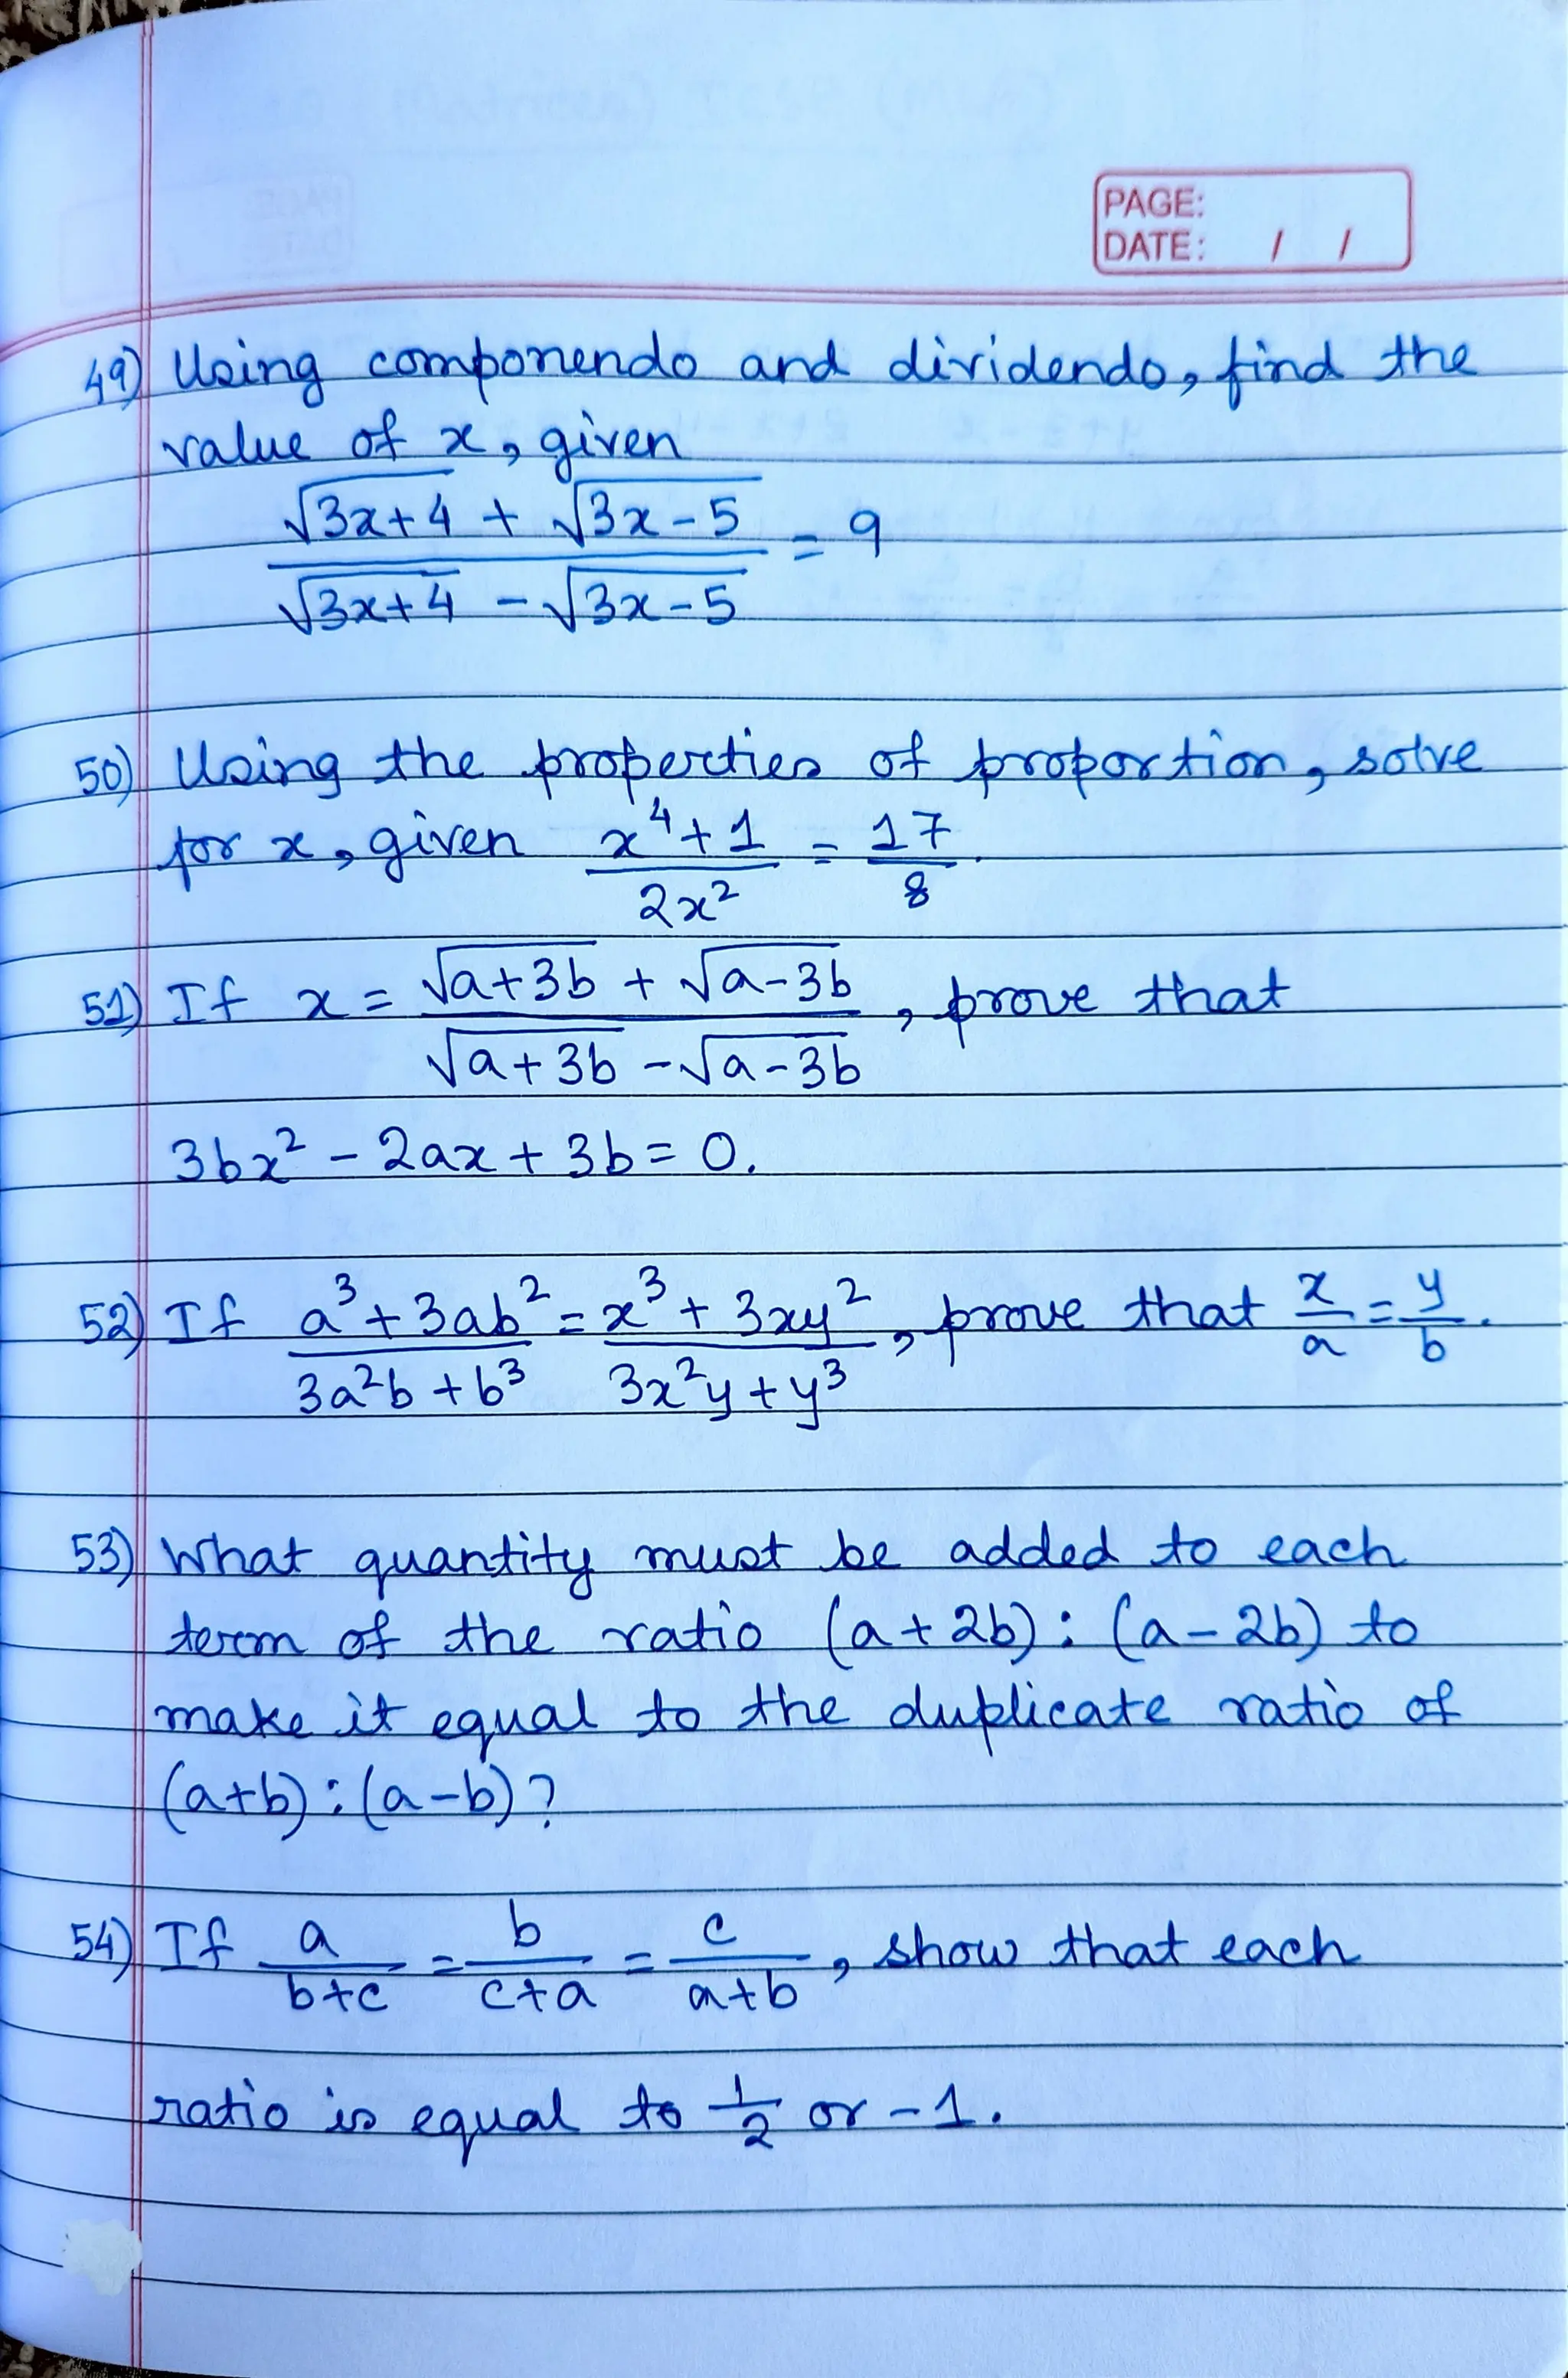 PAGE:
DATE: / /
49) Using componendo and dividendo, find the
value of x, given
√(3x+4) + √(3x-5) / √(3x+4) - √(3x-5) = 9
50) Using the properties of proportion, solve
for x, given (x⁴+1)/(2x²) = 17/8.
51) If x = (√(a+3b) + √(a-3b)) / (√(a+3b) - √(a-3b)), prove that
3bx² - 2ax + 3b = 0.
52) If (a³+3ab²)/(3a²b+b³) = (x³+3xy²)/(3x²y+y³), prove that x/a = y/b.
53) What quantity must be added to each
term of the ratio (a+2b) : (a-2b) to
make it equal to the duplicate ratio of
(a+b) : (a-b)?
54) If a/(b+c) = b/(c+a) = c/(a+b), show that each
ratio is equal to 1/2 or -1.